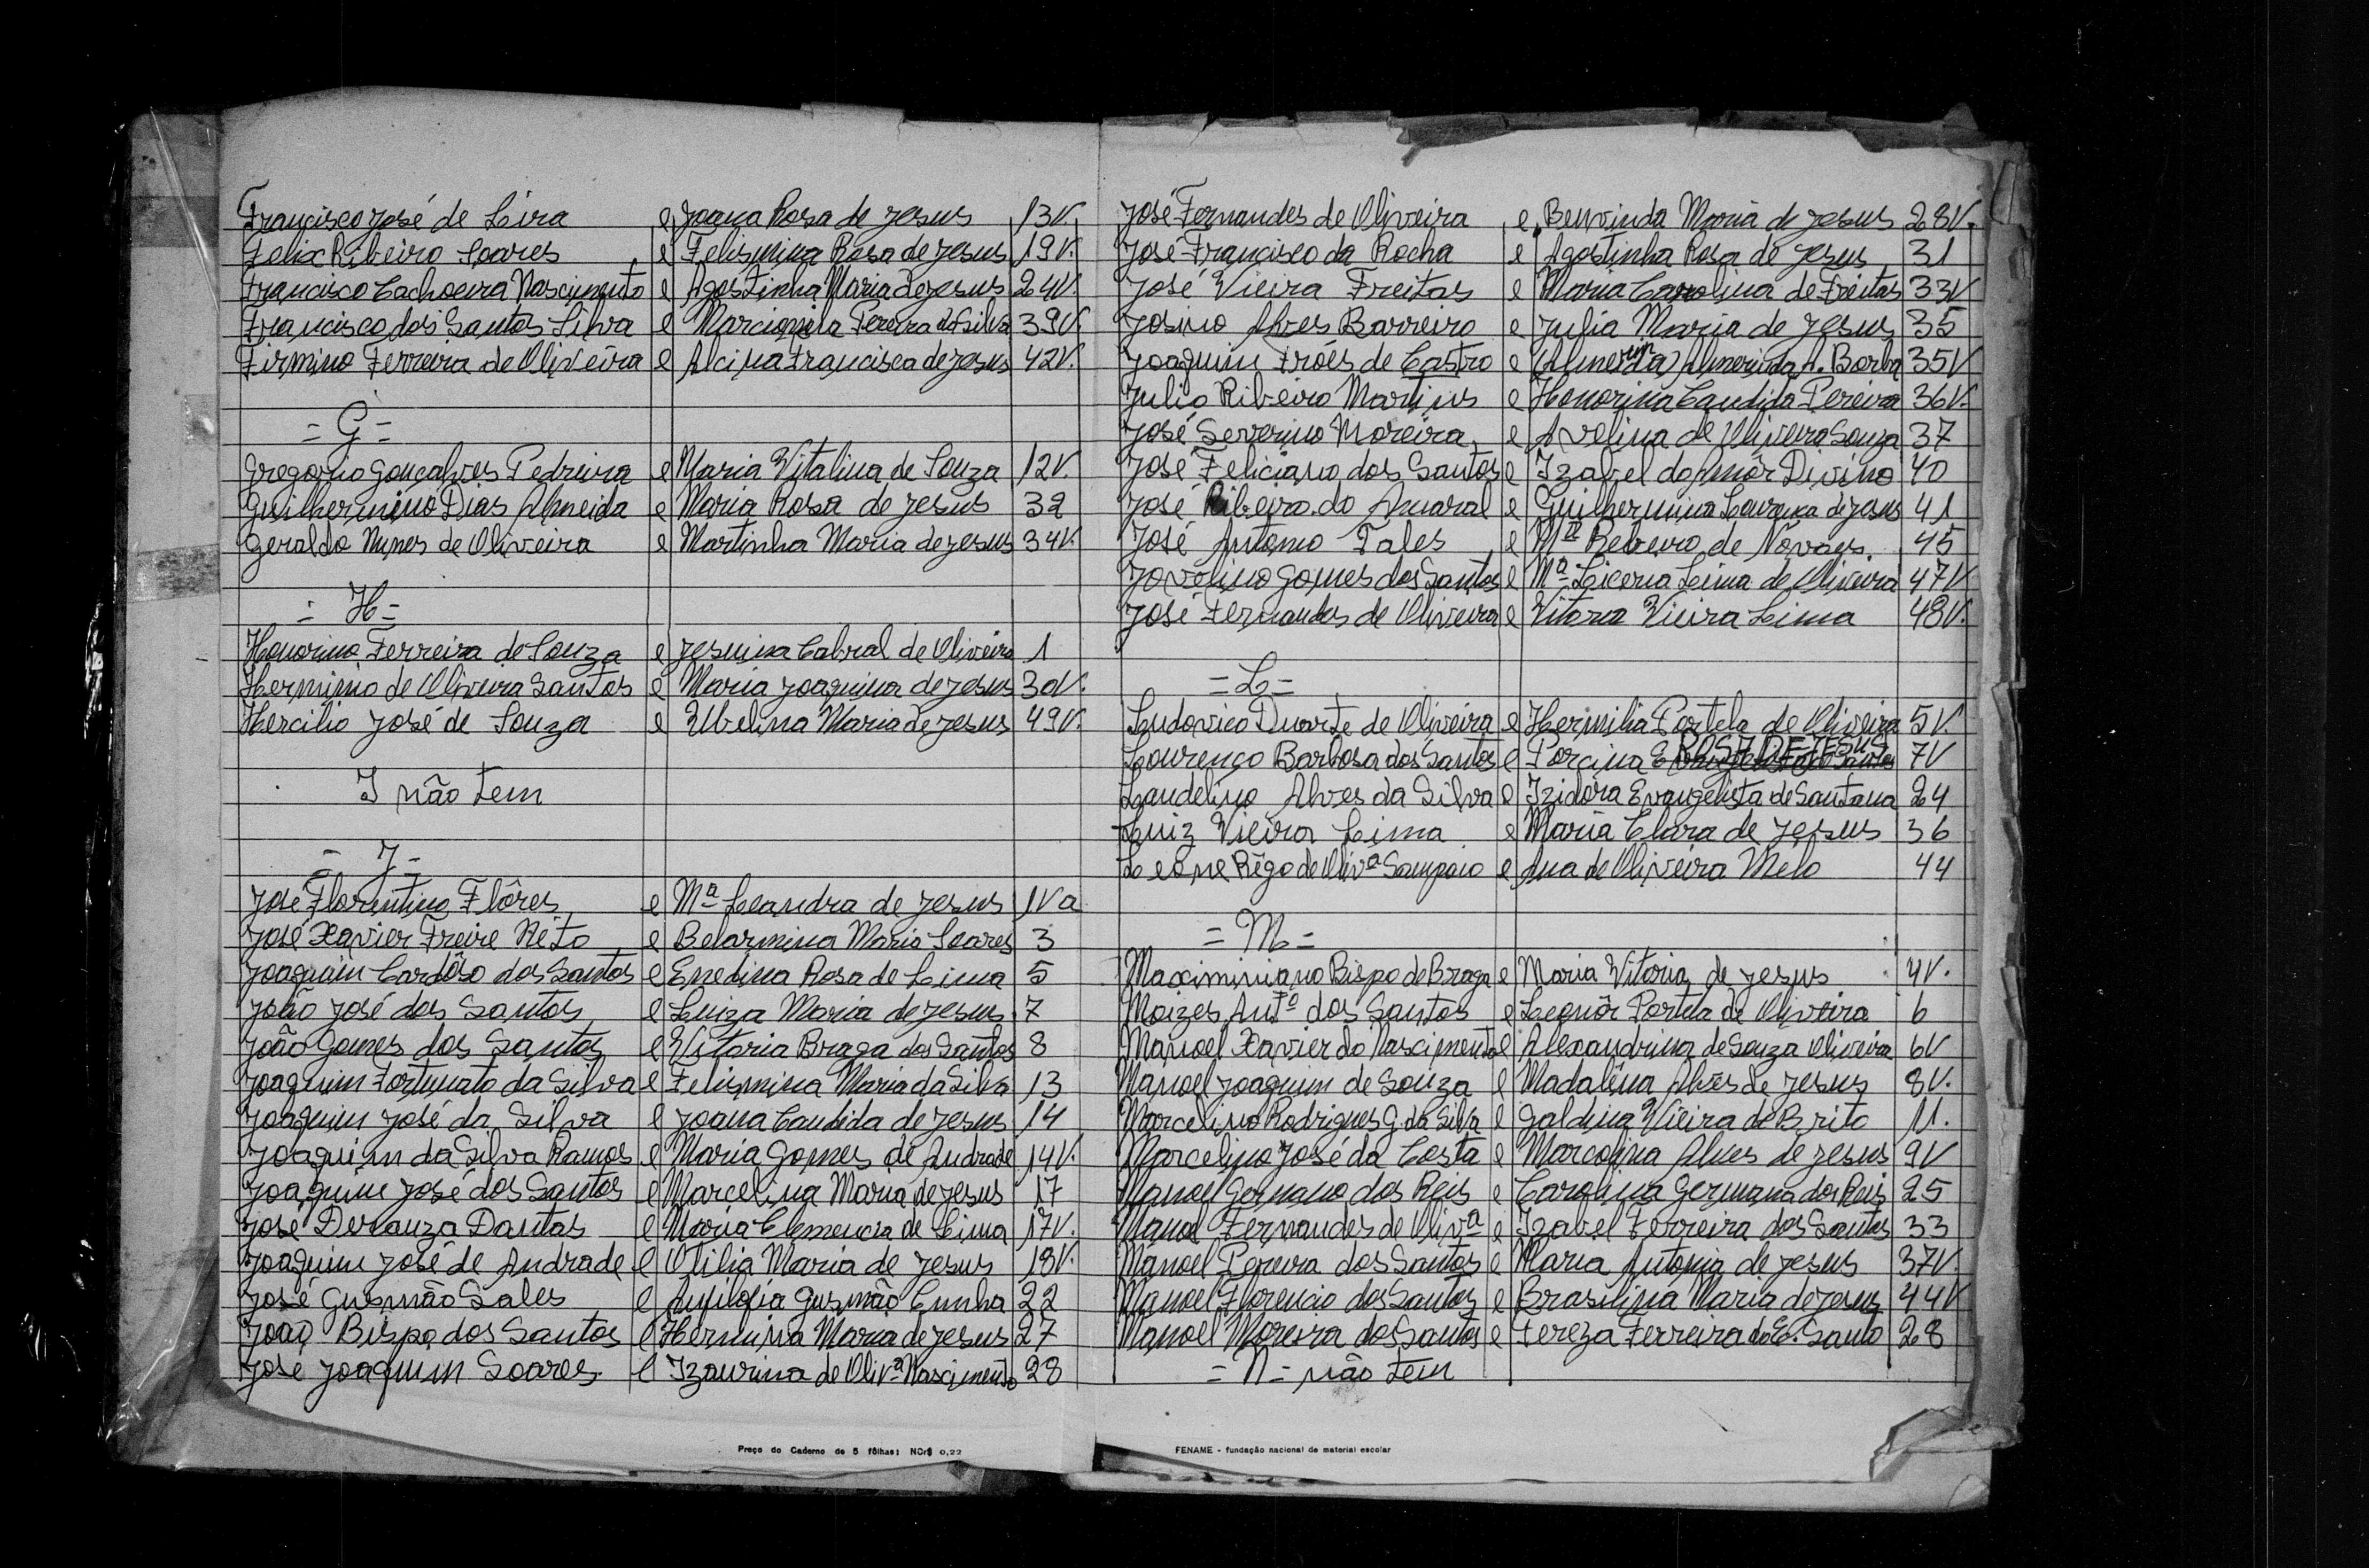 Francisco José de Lira e Joana Rosa de Jesus 13V.
Felix Ribeiro Soares e Felismina Rosa de Jesus 19V.
Francisco Cachoeira Nascimento e Agostinha Maria de Jesus 24V.
Francisco dos Santos Silva e Marcionila Pereira da Silva 39V
Firmino Ferreira de Oliveira e Alcina Francisca de Jesus 42V.
= G =
Gregorio Gonçalves Pedreira e Maria Vitalina de Souza 12V.
Guilhermino Dias Almeida e Maria Rosa de Jesus 32
Geraldo Nunes de Oliveira e Martinha Maria de Jesus 34V.
= H =
Honorino Ferreira de Souza e Jesuina Cabral de Oliveira 1
Herminio de Oliveira Santos e Maria Joaquina de Jesus 30V.
Hercilio José de Souza e Ubelina Maria de Jesus 49V.
I não tem
= J =
José Florentino Flôres e Mª Leandra de Jesus 1V a
José Xavier Freire Neto e Belarmina Maria Soares 3
Joaquim Cardôso dos Santos e Enedina Rosa de Lima 5
João José dos Santos e Luiza Maria de Jesus 7
João Gomes dos Santos e Vitoria Braga dos Santos 8
Joaquim Fortunato da Silva e Felismina Maria da Silva 13
Joaquim José da Silva e Joana Candida de Jesus 14
Joaquim da Silva Ramos e Maria Gomes de Andrade 14V.
Joaquim José dos Santos e Marcelina Maria de Jesus 17
José Dantas e Maria Clemencia de Lima 17V.
Joaquim José de Andrade e Otilia Maria de Jesus 18V.
José Gusmão Sales e Gusmão Cunha 22
João Bispo dos Santos e Hermina Maria de Jesus 27
José Joaquim Soares e Izaurina de Olivª Nascimento 28
Preço do Caderno de 5 fôlhas: NCr$ 0,22
José Fernandes de Oliveira e Benvinda Maria de Jesus 28V.
José Francisco da Rocha e Agostinha Rosa de Jesus 31
José Vieira Freitas e Maria Carolina de Freitas 33V
Josino Alves Barreiro e Julia Maria de Jesus 35
Joaquim Fróes de Castro e (Almerinda) Almerinda A. Borba 35V
Julio Ribeiro Martins e Honorina Candida Pereira 36V.
José Severino Moreira e Avelina de Oliveira Souza 37
José Feliciano dos Santos e Izabel do Amôr Divino 40
José Ribeiro do Amaral e Guilhermina Lourença de Jesus 41
José Antonio Tales e Mª Rebeiro de Novaes. 45
Jovelino Gomes dos Santos e Mª Licena Lima de Oliveira 47V
José Fernandes de Oliveira e Vitoria Vieira Lima 48V.
= L =
Ludovico Duarte de Oliveira e Hermilia Portela de Oliveira 5V.
Lourenço Barbosa dos Santos e Porcina ROSA DE JESUS 7V
Laudelino Alves da Silva e Izidora Evangelista de Santana 24
Luiz Vieira Lima e Maria Clara de Jesus 36
Leone Rêgo de Olivª Sampaio e Ana de Oliveira Melo 44
= M =
Maximiniano Bispo de Braga e Maria Vitoria de Jesus 4V.
Moizes Antº dos Santos e Leonôr Portela de Oliveira 6
Manoel Xavier do Nascimento e Alexandrina de Souza Oliveira 6V
Manoel Joaquim de Souza e Madalêna Alves de Jesus 8V.
Marcelino Rodrigues G. da Silva e Galdina Vieira de Brito 11.
Marcelino José da Costa e Marcolina Alves de Jesus 9V
Manoel Germano dos Reis e Carolina Germana dos Reis 25
Manoel Fernandes de Olivª e Izabel Ferreira dos Santos 33
Manoel Pereira dos Santos e Maria Antonia de Jesus 37V.
Manoel Florencio dos Santos e Brasilina Maria de Jesus 44V
Manoel Moreira dos Santos e Tereza Ferreira do E. Santo 28
= N = não tem
FENAME - fundação nacional de material escolar